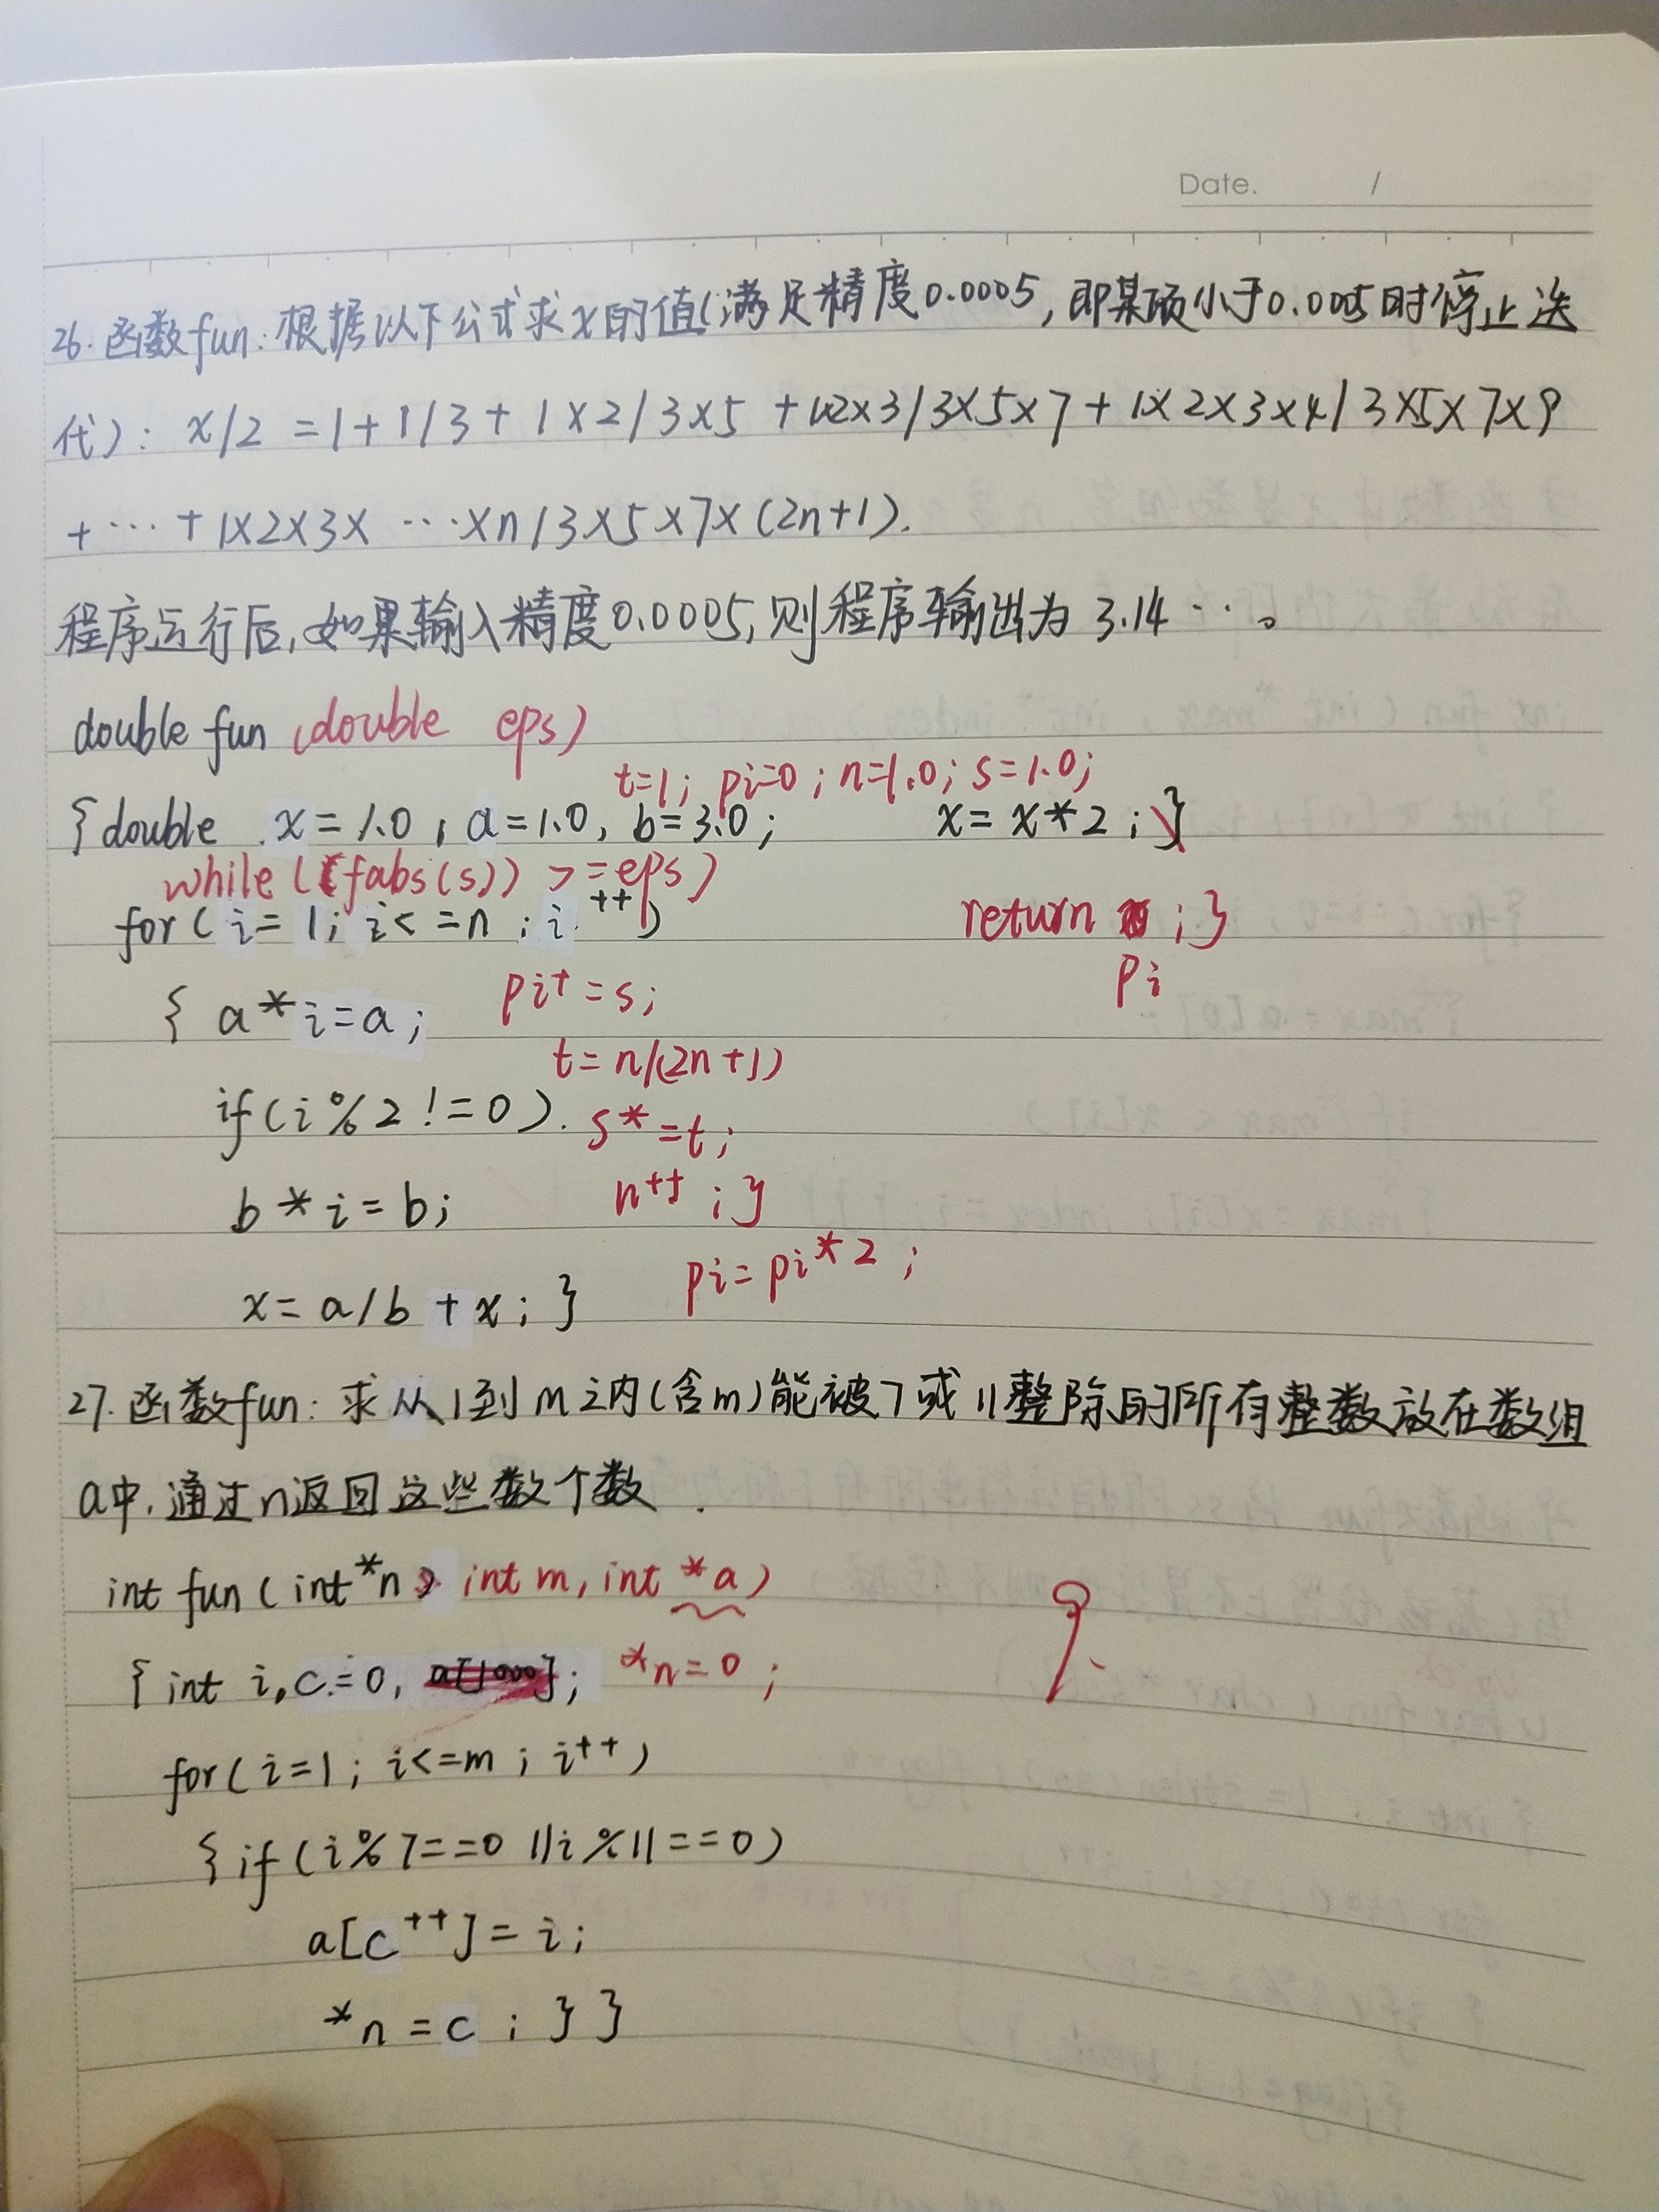 Date. /
26. 函数fun: 根据以下公式求x的值(满足精度0.0005, 即某项小于0.0005时停止迭
代): x/2 = 1+1/3+1×2/3×5+1×2×3/3×5×7+1×2×3×4/3×5×7×9
+…+1×2×3×…×n/3×5×7×(2n+1).
程序运行后, 如果输入精度0.0005, 则程序输出为 3.14…。
double fun (double eps)
t=1; pi=0; n=1.0; s=1.0;
{double x=1.0, a=1.0, b=3.0; x=x*2; }
while ((fabs(s)) >=eps)
for(i=1; i<=n; i++) return ;}
pi
{ a*i=a; pi+=s;
t=n/(2n+1)
if(i%2!=0). s*=t;
b*i=b; n++;}
pi=pi*2;
x=a/b+x; }
27. 函数fun: 求从1到m之内(含m)能被7或11整除的所有整数放在数组
a中, 通过n返回这些数个数.
int fun(int *n, int m, int *a)
{int i, c=0, a[1000]; *n=0;
for(i=1; i<=m; i++)
{if(i%7==0 ||i%11==0)
a[c++]=i;
*n=c; } }